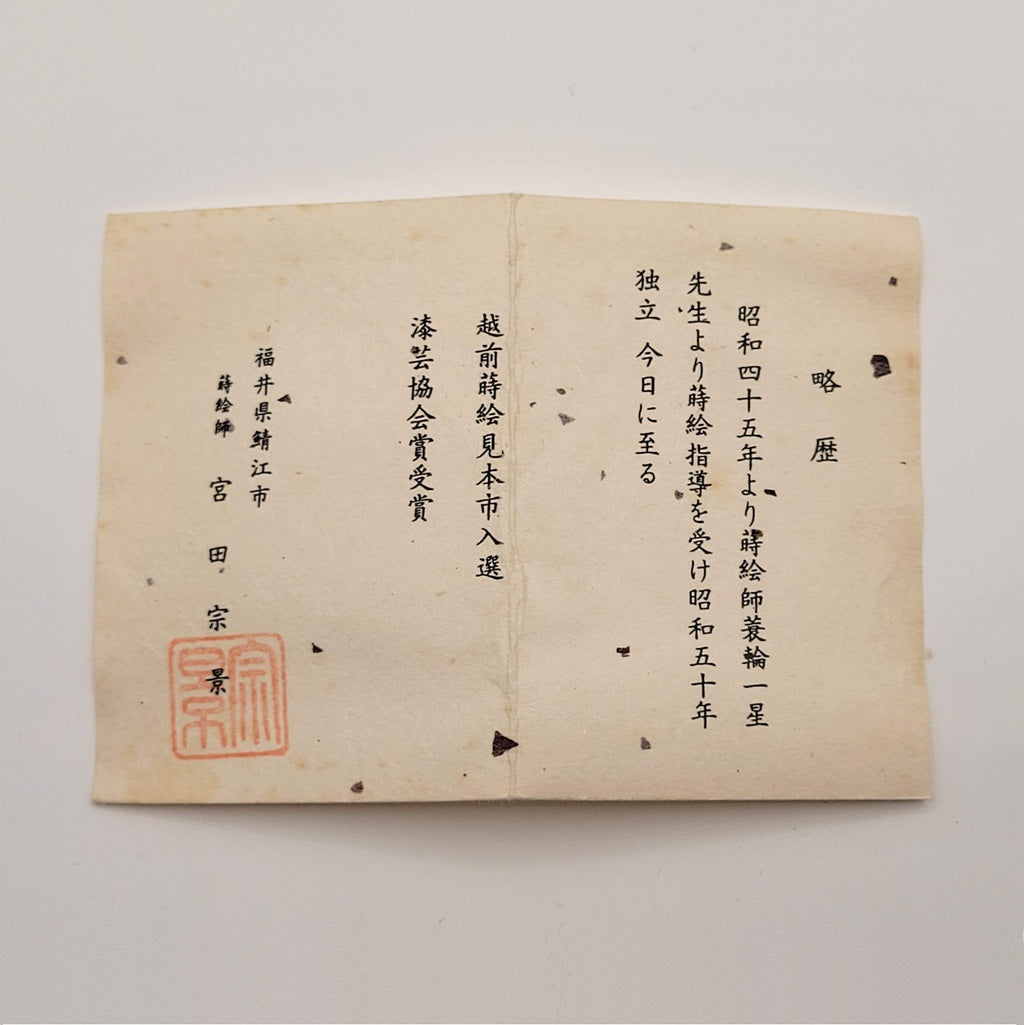 略歴
昭和四十五年より蒔絵師蓑輪一星
先生より蒔絵指導を受け昭和五十年
独立 今日に至る
越前蒔絵見本市入選
漆芸協会賞受賞
福井県鯖江市
蒔絵師 宮田宗景
宗景